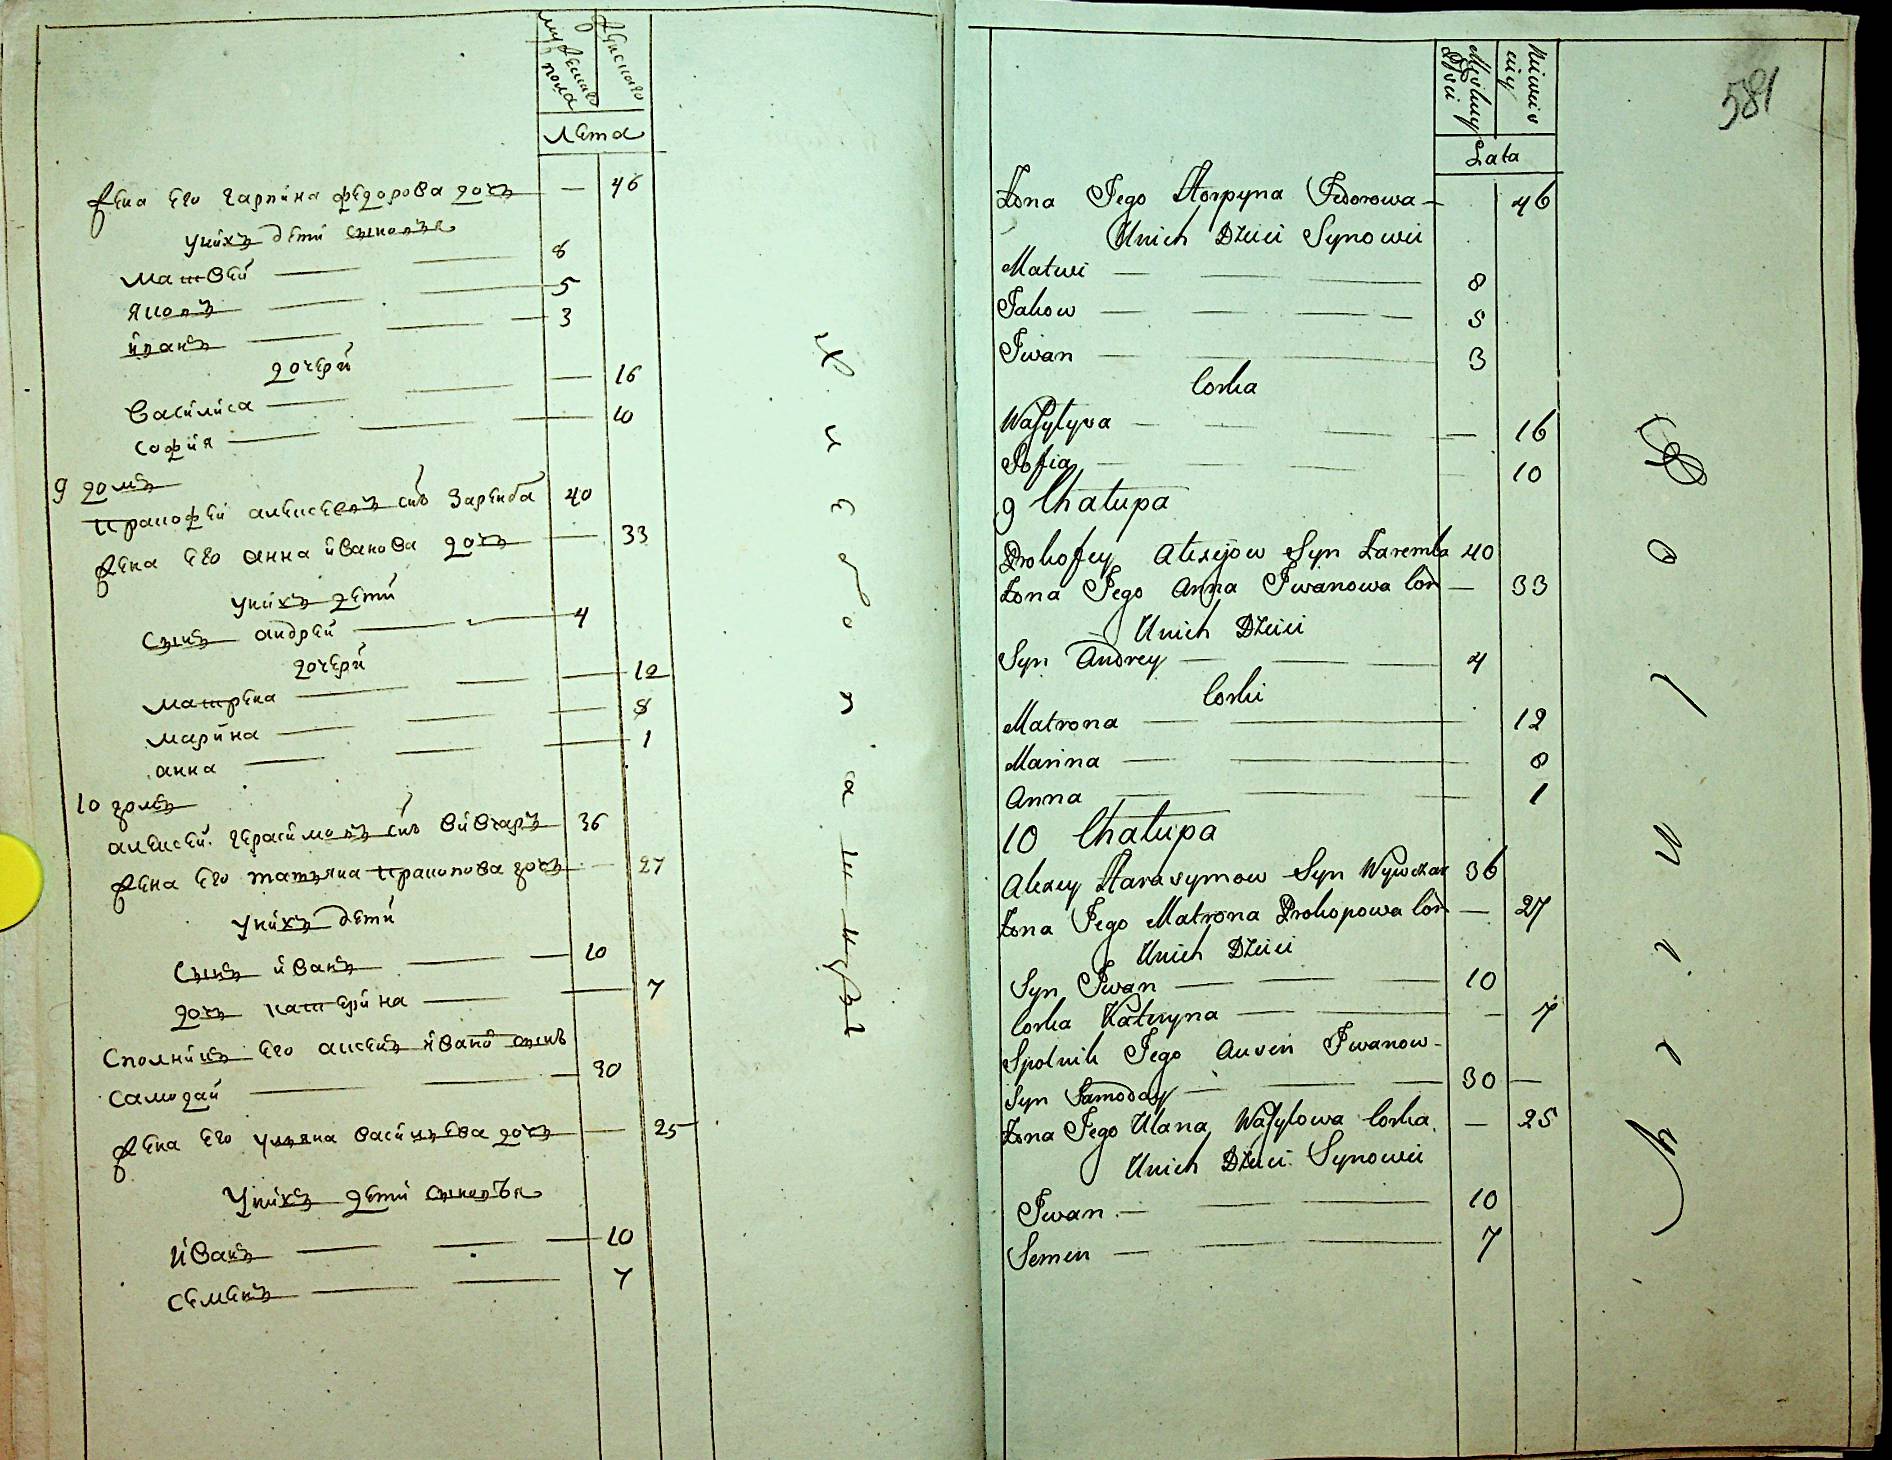 мужеска пола
женскаго
лета
жена его гарпина федорова дочь — 46
уних дети сыновья
матвей 8
яков 5
иван 3
дочери
василиса — 16
софия — 10
9 домъ
прокофей алексеевъ снъ Заремба 40
жена его анна иванова дочь — 33
уних дети
сынъ андрей 4
дочери
матрена — 12
марина 8
анна 1
10 домъ
алексей герасимовъ снъ вивчаръ 36
жена его татьяна прокопова дочь — 27
уних дети
сынъ иванъ 10
дочь катерина — 7
сполникъ его авсей ивановъ сынъ
самодай 30
жена его ульяна васильева дочь — 25
уних дети сыновья
иванъ 10
семенъ 7
581
Męskiey Płsci
Niewisciey
Lata
Żona Jego Harpyna Fedorowa — 46
Unich Dzieci Synowii
Matwi 8
Jakow 5
Iwan 3
Corka
Wasylysa — 16
Sofia 10
9 Chatupa
Prokofey Alexijow Syn Zaremba 40
Żona Jego Anna Iwanowa Cor — 33
Unich Dzieci
Syn Andrey 4
Corki
Matrona 12
Marina 8
Anna 1
10 Chatupa
Alexey Harasymow Syn Wywczar 36
Żona Jego Matrona Prokopowa Cor — 27
Unich Dzieci
Syn Iwan 10
Corka Kateryna — 7
Spolnik Jego Auxen Iwanow-
Syn Samoday 30 —
Żona Jego Ulana Wasylowa Corka — 25
Unich Dzieci Synowii
Iwan 10
Semen 7